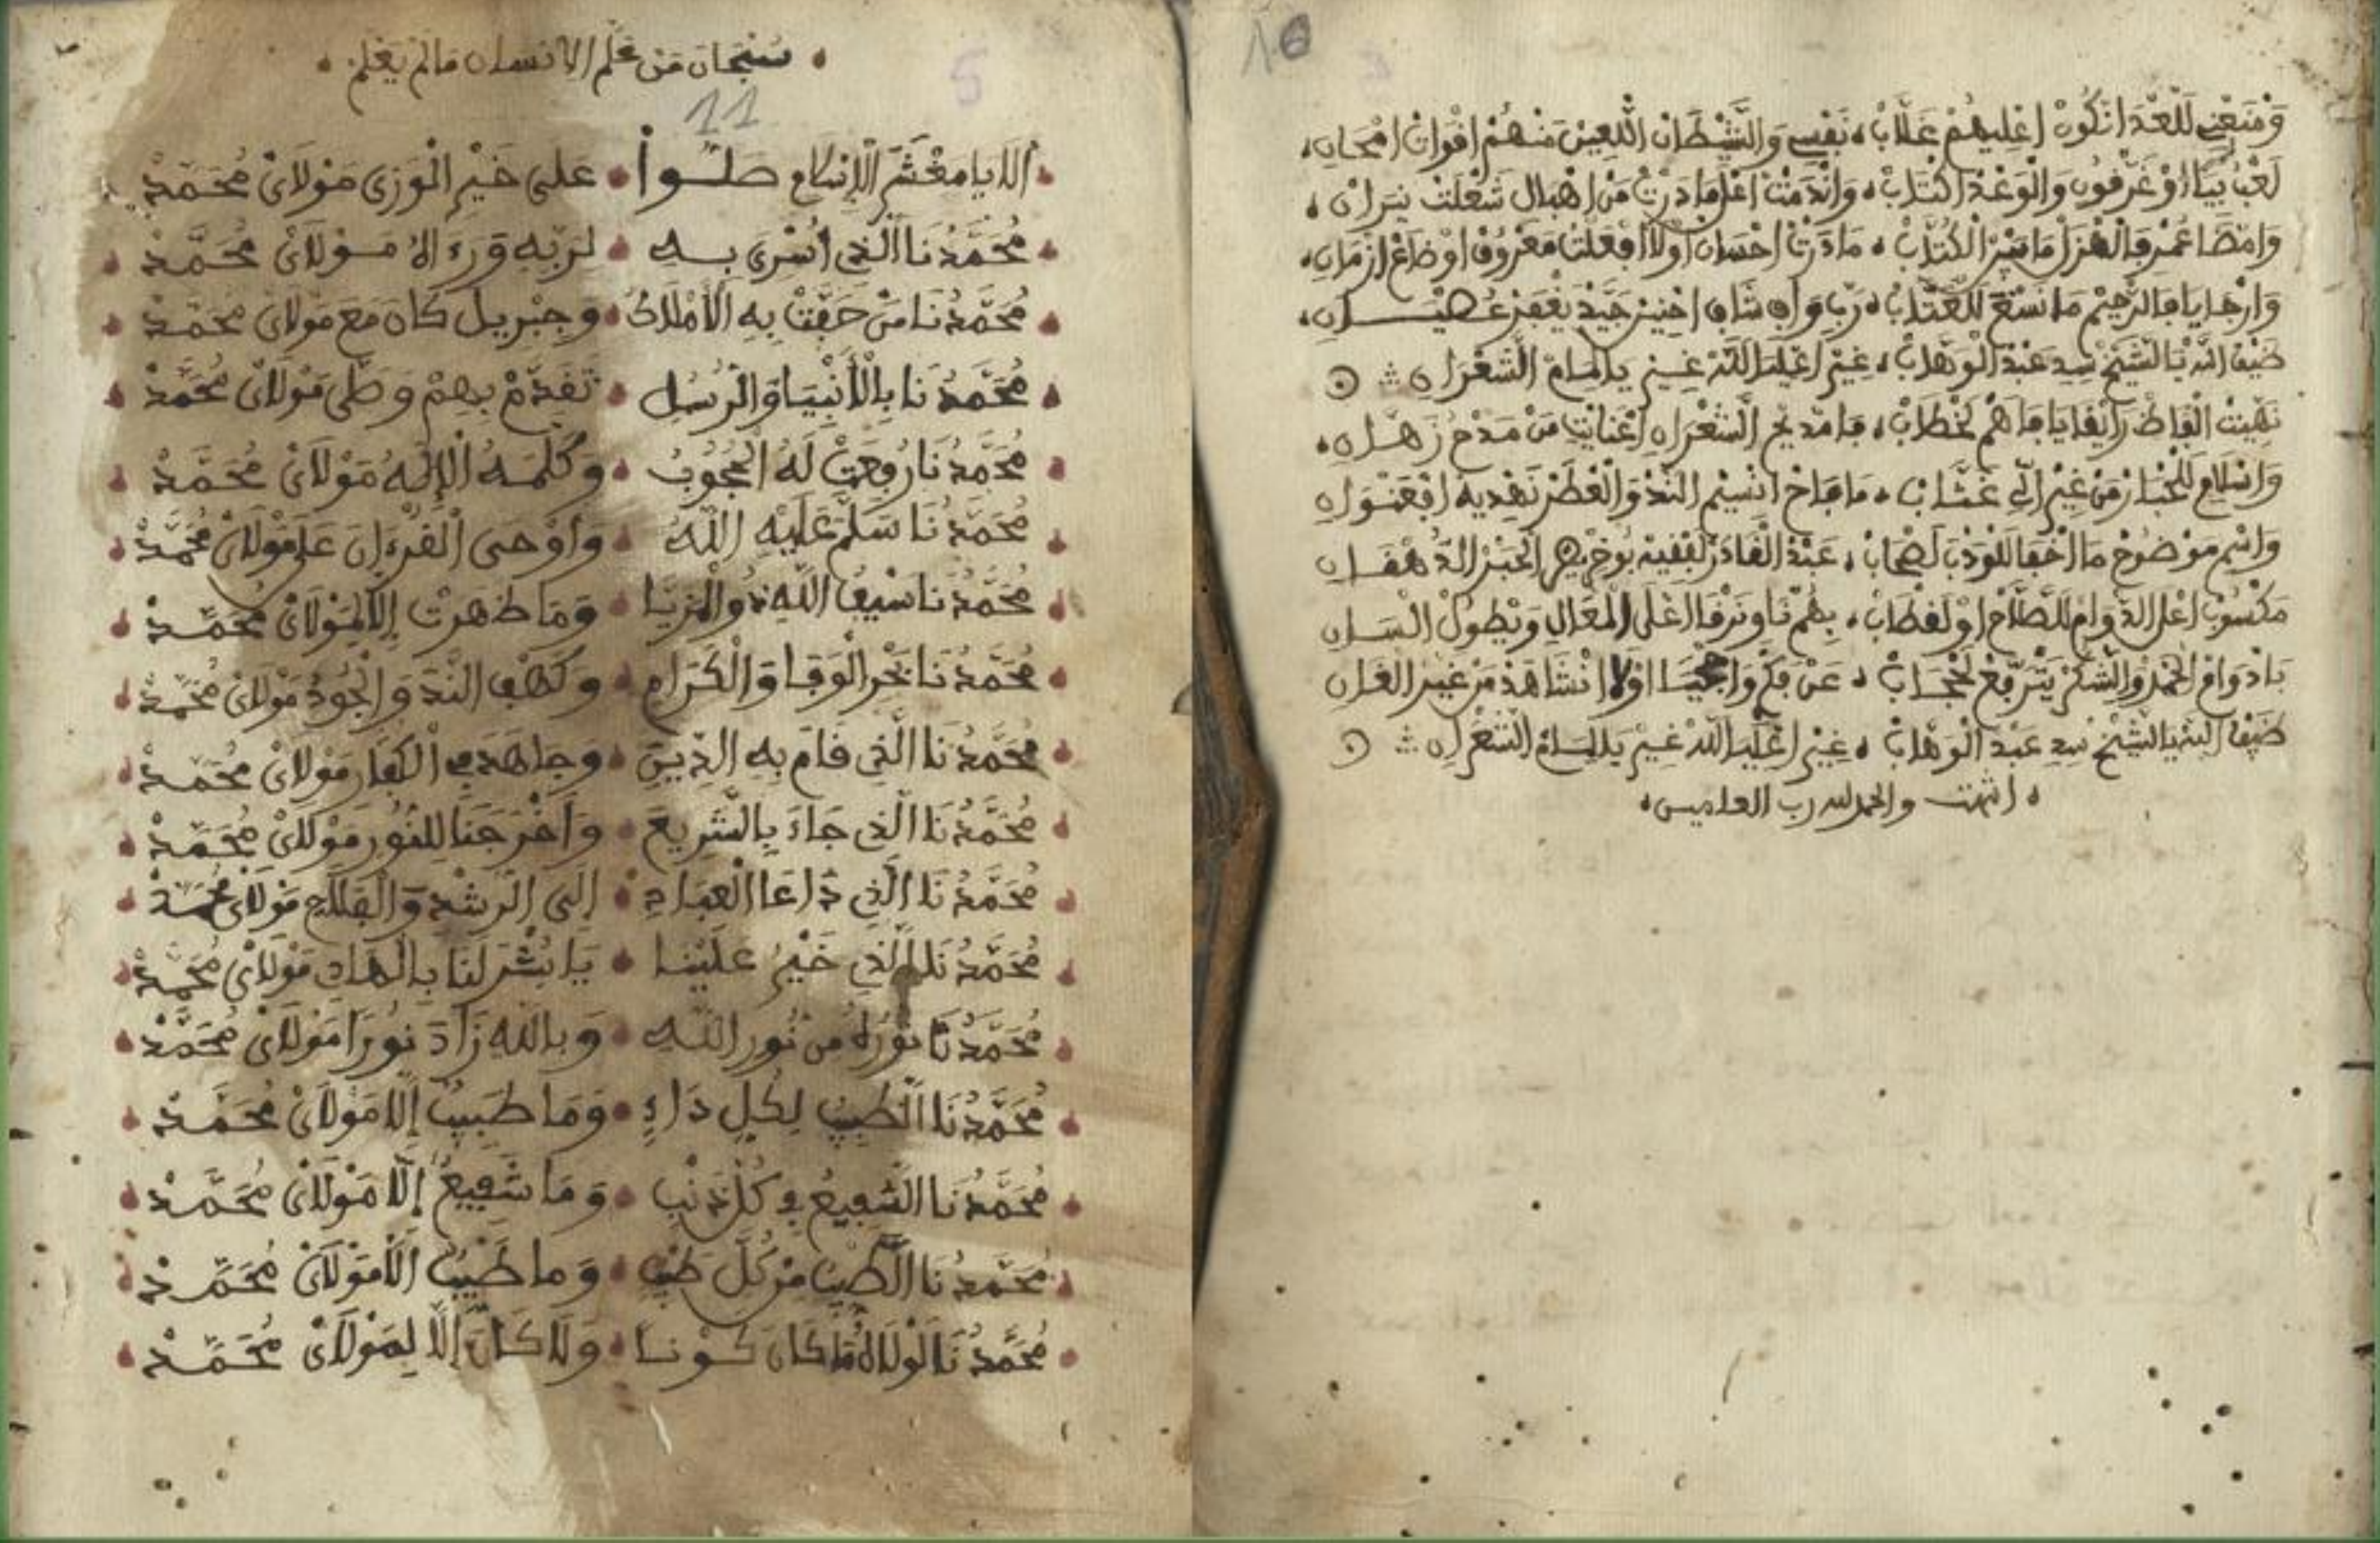 16
ومنعني للعدا نكون اغليهم غلاب نفسي والشيطان اللعين منهم افوات امحان
لعب بيا او غرفون والوغد اكتاب واندمت اعلى ما درت من اهبال شعلت نيران
وامضا عمر فالهزل ما بين الكتاب ما درت احسان اولا افعلت معروف او ضاع ازمان
وارجايا فالرحيم ما نسمع للعتاب رب واف شاف احنين جيد يغفر عصيان
ضيف الله يا الشيخ سيد عبد الوهاب غير اعليا لله غير يا لمام الشعران
نهيت الفاظ رايفا يا فاهم لخطاب فامديح الشعران اغنايت من مدح زهان
واسلام للخيار من غير الي غتاب ما فاح انسيم الند والعطر نهديه افعنوان
واسم موضوح ما اخفا للوذب لصحاب عبد القادر لفقيه بوخريص الحبر الدهقان
مكسوب اعلى الدوام للصلاح او لقطاب بهم ناو نرقا اعلى المعال ويطول السان
بادوام الحمد والشكر يترفع لحجاب عن واجبنا اولا انشاهد من غير الغان
ضيف الله يا الشيخ سيد عبد الوهاب غير اعليا لله غير يا لمام الشعران
انتهت والحمد لله رب العلمين
سبحان من علم الانسان ما لم يعلم
11
5
ألا يا معشر الإسلام صلوا على خير الورى مولاي محمد
محمدنا الذي أسرى به لربه ورءاه مولاي محمد
محمدنا من حفت به الأملاك وجبريل كان مع مولاي محمد
محمدنا بالأنبيا والرسل تقدم بهم وصلى مولاي محمد
محمدنا رفعت له الحجوب وكلمه الإله مولاي محمد
محمدنا سلم عليه الله وأوحى القرءان على مولاي محمد
محمدنا سيف الله ذو المزيا وما ظهرت إلا لمولاي محمد
محمدنا بحر الوفا والكرام وكهف الند والجود مولاي محمد
محمدنا الذي قام به الدين وجاهد في الكفار مولاي محمد
محمدنا الذي جاء بالشريع وأخرجنا للنور مولاي محمد
محمدنا الذي دا عا العباد إلى الرشد والفلاح مولاي محمد
محمدنا الذي خير علينا يا بشر لنا بالهاد مولاي محمد
محمدنا نوره من نور الله وبالله زاد نورا مولاي محمد
محمدنا الطبيب لكل داء وما طبيب إلا مولاي محمد
محمدنا الشفيع في كل ذنب وما شفيع إلا مولاي محمد
محمدنا الطيب من كل طيب وما طيب إلا مولاي محمد
محمدنا لولاه ما كان كونا ولا كان إلا لمولاي محمد